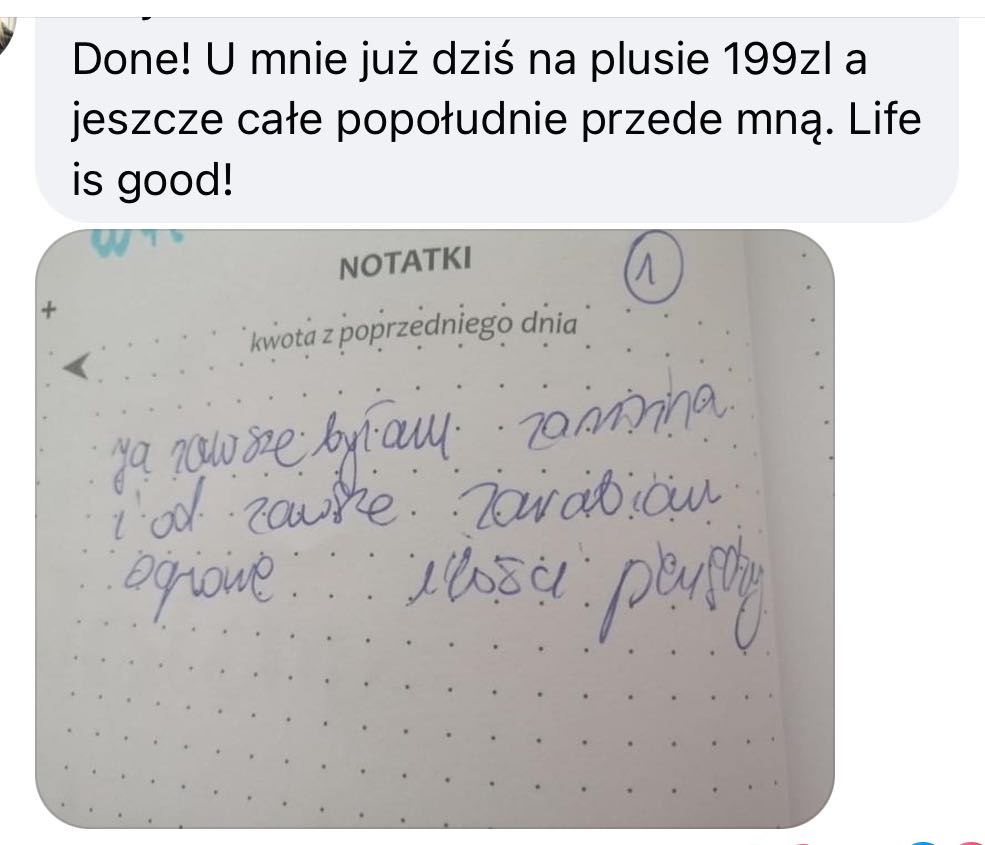 Done! U mnie już dziś na plusie 199zl a
jeszcze całe popołudnie przede mną. Life
is good!
NOTATKI
1
+
kwota z poprzedniego dnia
ja zawsze byłam zamożna
i od zawsze zarabiam
ogromne ilości